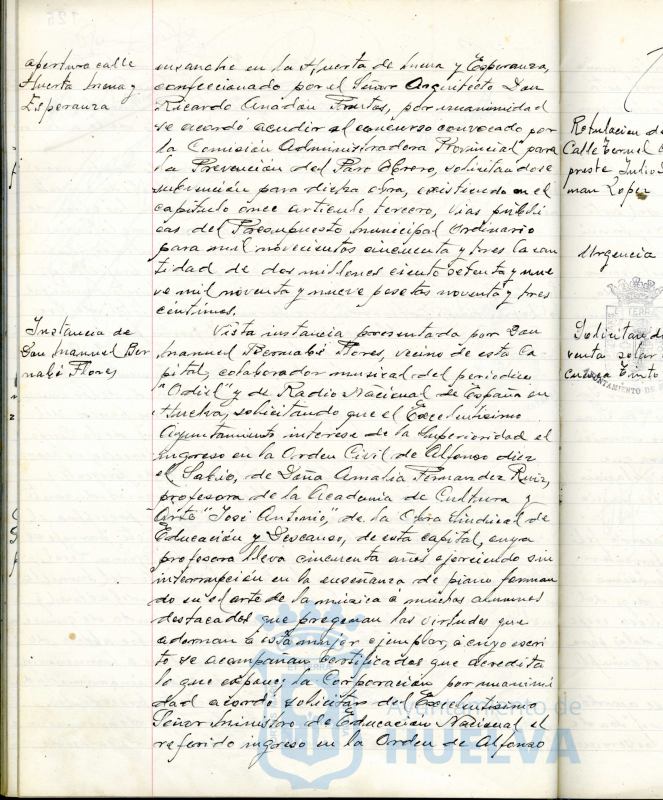 apertura calle
Huerta Mena y
Esperanza
ensanche en la Huerta de Mena y Esperanza,
confeccionado por el Señor Arquitecto Don
Ricardo Anadón Frutos, por unanimidad
se acordó acudir al concurso convocado por
la Comisión Administradora Provincial" para
la Prevención del Paro Obrero, solicitandose
subvención para dicha obra, existiendo en el
capítulo once artículo tercero, vias públi
cas del Presupuesto Municipal Ordinario
para mil novecientos cincuenta y tres la can
tidad de dos millones ciento setenta y nue
ve mil noventa y nueve pesetas noventa y tres
céntimos.
Instancia de
Don Manuel Ber
nabé Flores
Vista instancia presentada por Don
Manuel Bernabé Flores, vecino de esta Ca-
pital, colaborador musical del periódico
"Odiel" y de Radio Nacional de España en
Huelva, solicitando que el Excelentísimo
Ayuntamiento interese de la Superioridad el
ingreso en la Orden Civil de Alfonso diez
el Sabio, de Doña Amalia Fernandez Ruiz,
profesora de la Academia de Cultura y
Arte "José Antonio", de la Obra Sindical de
Educación y Descanso, de esta capital, cuya
profesora lleva cincuenta años ejerciendo sin
interrupción en la enseñanza de piano forman
do en el arte de la música a muchos alumnos
destacados que pregonan las virtudes que
adornan a esta mujer ejemplar, a cuyo escri
to se acompañan certificados que acredita
lo que expone; la Corporación por unanimi
dad acordó solicitar del Excelentísimo
Señor Ministro de Educación Nacional el
referido ingreso en la Orden de Alfonso
Rotulación de
Calle Teruel
preste Julio
man Lopez
Urgencia
Solicitan de
venta solar
Ayuntamiento de
HUELVA